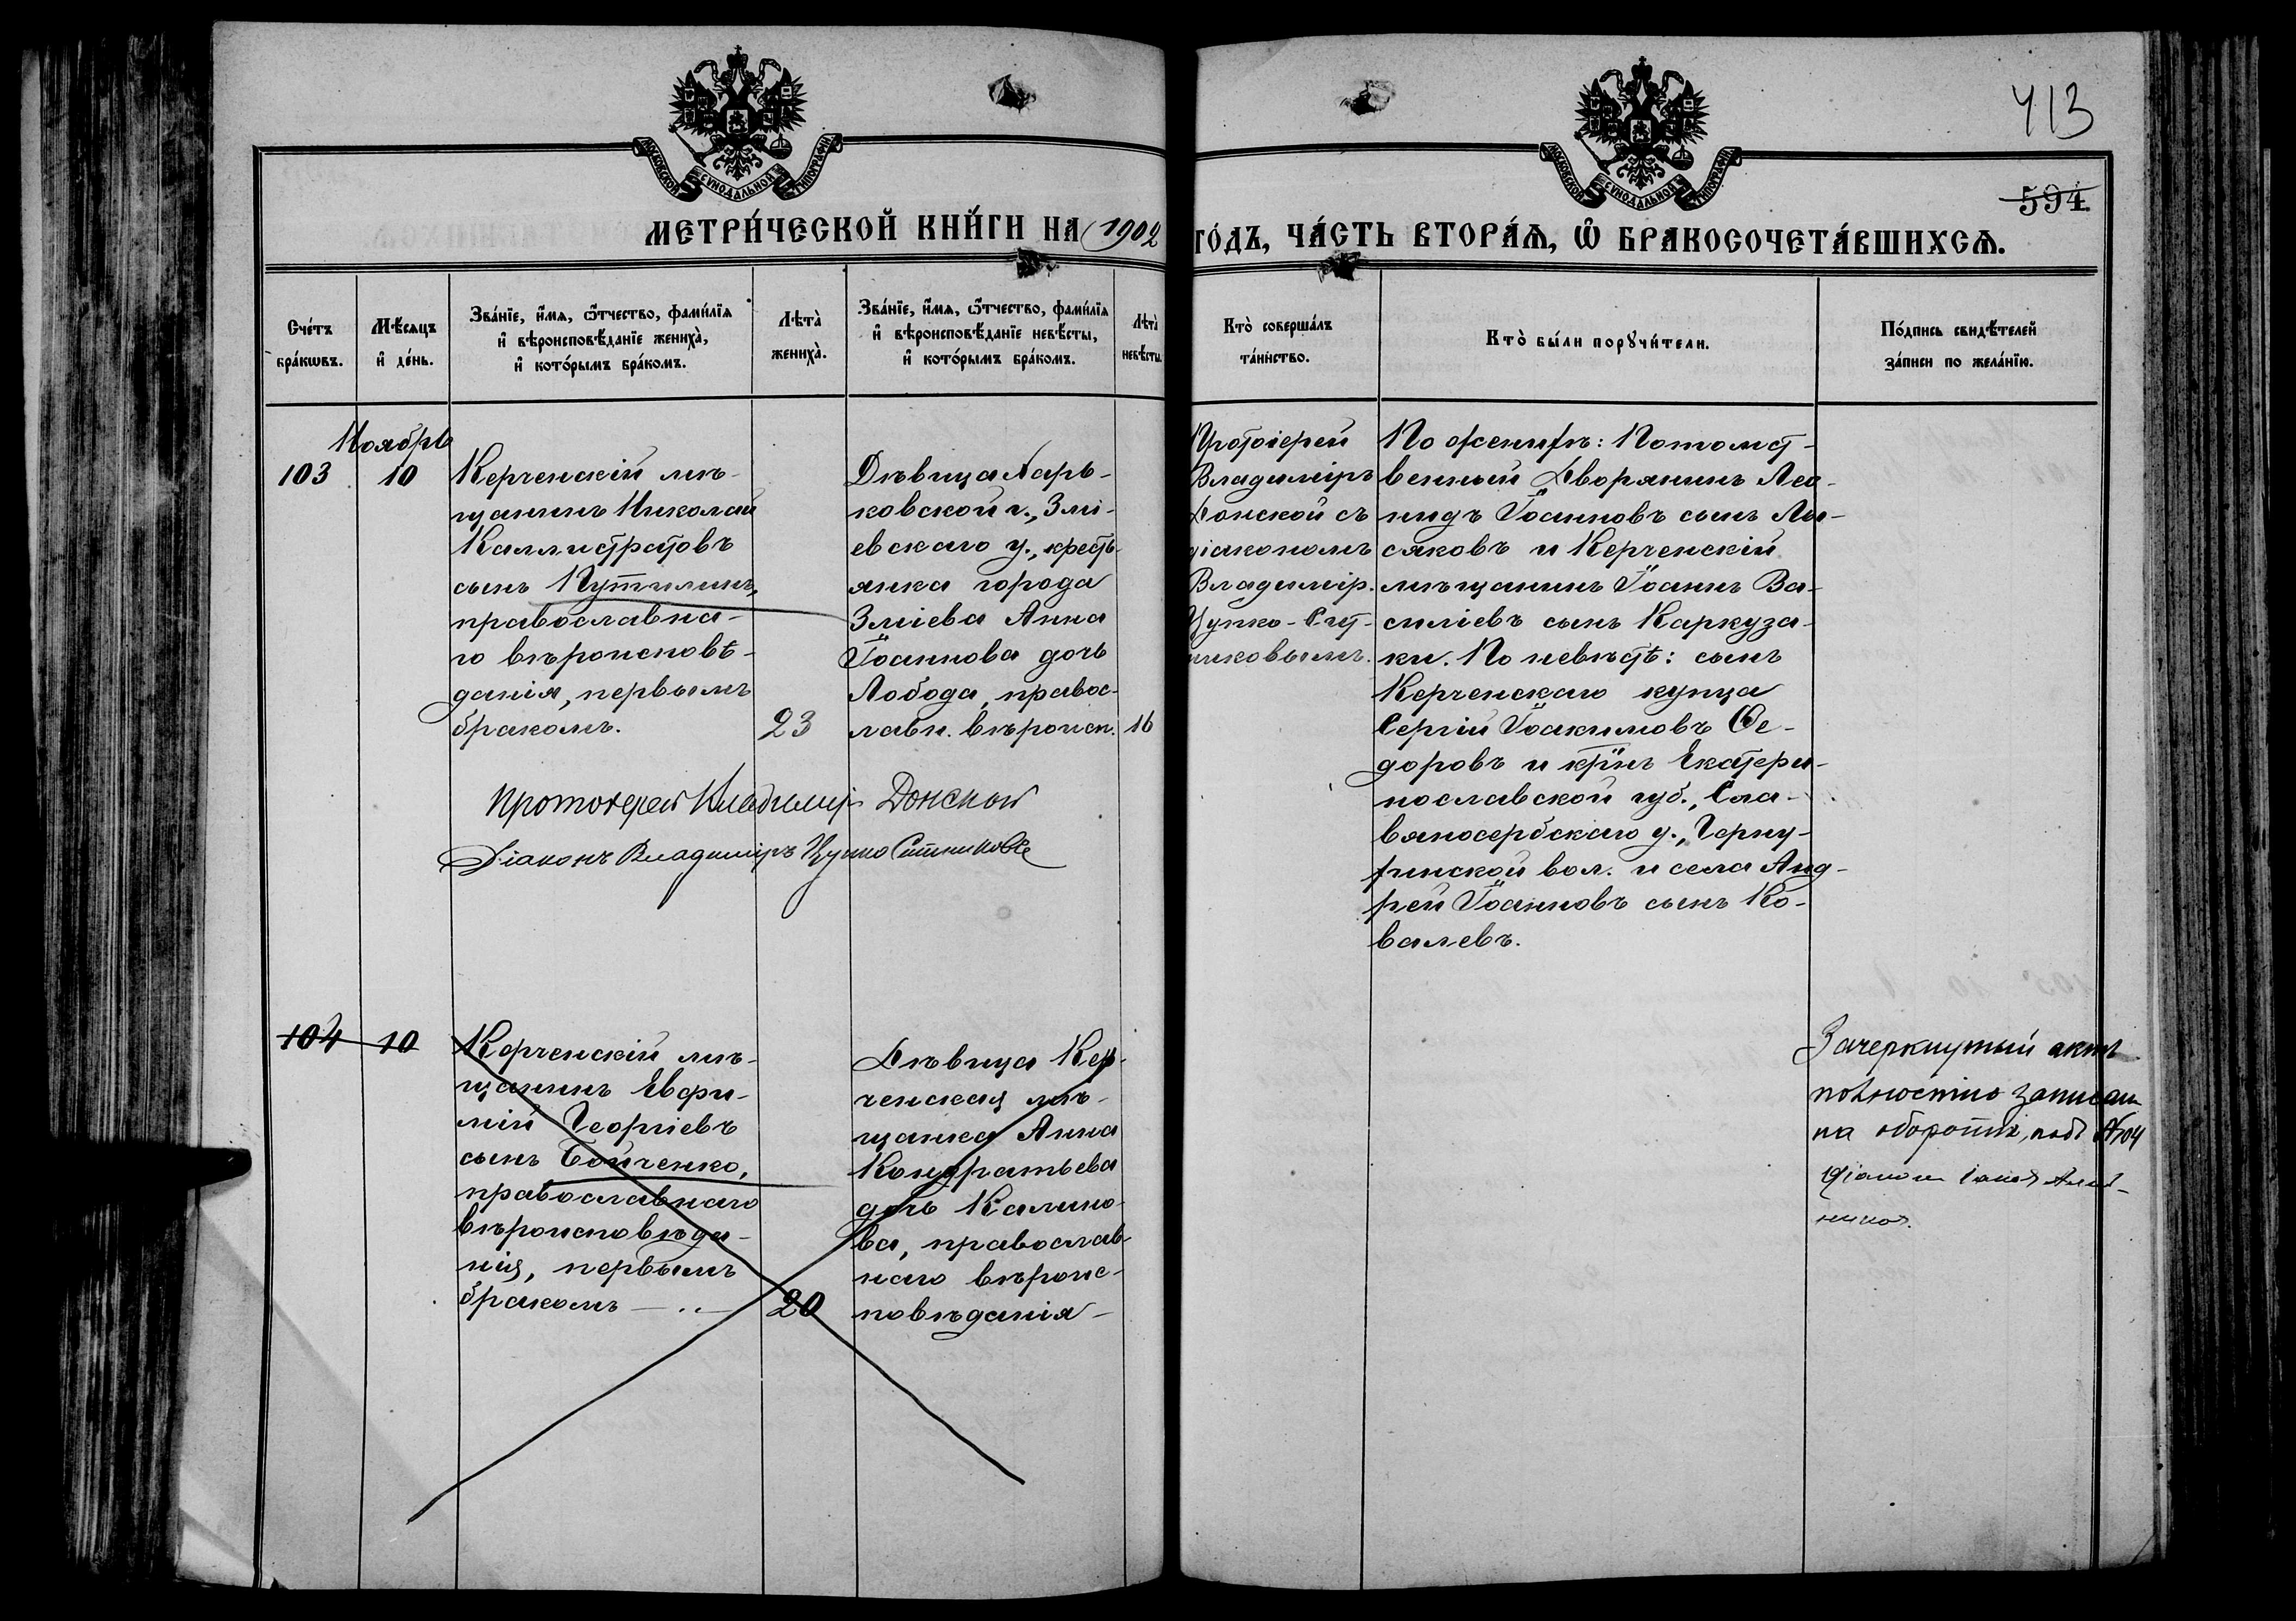 413
594
МОСКОВСКОЙ СѴНОДАЛЬНОЙ ТИПОГРАФІИ
МОСКОВСКОЙ СѴНОДАЛЬНОЙ ТИПОГРАФІИ
МЕТРИ́ЧЕСКОЙ КНИ́ГИ НА 1902
ГО́ДЪ, ЧА́СТЬ ВТОРА́Ѧ, Ѽ БРАКОСОЧЕТА́ВШИХСѦ.
Сче́тъ
бра́кѡвъ.
Мѣ́сѧцъ
и҆ де́нь.
Зва́нїе, и҆́мѧ, ѻ҆́тчество, фами́лїѧ
и҆ вѣроисповѣ́данїе жениха̀,
и҆ кото́рымъ бра́комъ.
Лѣта̀
жениха̀.
Зва́нїе, и҆́мѧ, ѻ҆́тчество, фами́лїѧ
и҆ вѣроисповѣ́данїе невѣ́сты,
и҆ кото́рымъ бра́комъ.
Лѣта̀
невѣ́сты
Кто̀ соверша́лъ
та́инство.
Кто̀ бы́ли порꙋчи́тели.
По́дпись свидѣ́телей
за́писи по жела́нїю.
Ноябрь
103
10
Керченскій мѣ-
щанинъ Николай
Каллистратовъ
сынъ Путилинъ,
православна-
го вѣроисповѣ-
данія, первымъ
бракомъ.
23
Дѣвица Харь-
ковской г., Змі-
евскаго у., кресть-
янка города
Зміева Анна
Іоаннова дочь
Лобода, правос-
лавн. вѣроисп.
16
Протоіерей
Владиміръ
Донской съ
діакономъ
Владимір.
Цупко-Сит-
никовымъ.
По женихѣ: Потомст-
венный Дворянинъ Лео-
нидъ Іоанновъ сынъ Лы-
сяковъ и Керченскій
мѣщанинъ Іоаннъ Ва-
силіевъ сынъ Каркуза-
ки. По невѣстѣ: сынъ
Керченскаго купца
Сергій Іоакимовъ Ѳе-
доровъ и кр̃нъ Екатери-
нославской губ., Сла-
вяносербскаго у., Черну-
хинской вол. и села Анд-
рей Іоанновъ сынъ Ко-
валевъ.
Протоіерей Владиміръ Донской
Діаконъ Владиміръ Цупко Ситниковъ
104
10
Керченскій мѣ-
щанинъ Евфи-
мій Георгіевъ
сынъ Бойченко,
православнаго
вѣроисповѣда-
нія, первымъ
бракомъ
20
Дѣвица Кер-
ченская мѣ-
щанка Анна
Кондратьева
дочь Калино-
ва, православ-
наго вѣроис-
повѣданія
Зачеркнутый актъ
полностію записан
на оборотѣ, подъ №104